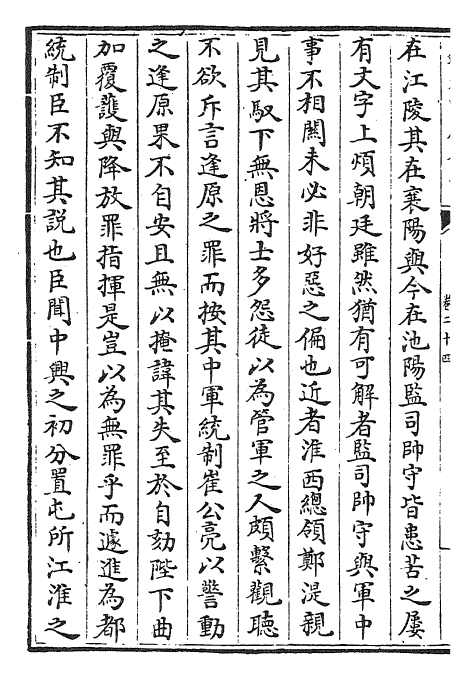 在江陵其在襄陽與今在池陽監司帥守皆患苦之屢
有文字上煩朝廷雖然猶有可解者監司帥守與軍中
事不相關未必非好惡之偏也近者淮西總領鄭湜親
見其馭下無恩將士多怨徒以為管軍之人頗繫觀聽
不欲斥言逢原之罪而按其中軍統制崔公亮以警動
之逢原果不自安且無以掩諱其失至於自劾陛下曲
加覆護與降放罪指揮是豈以為無罪乎而遽進為都
統制臣不知其說也臣聞中興之初分置屯所江淮之
卷二十四